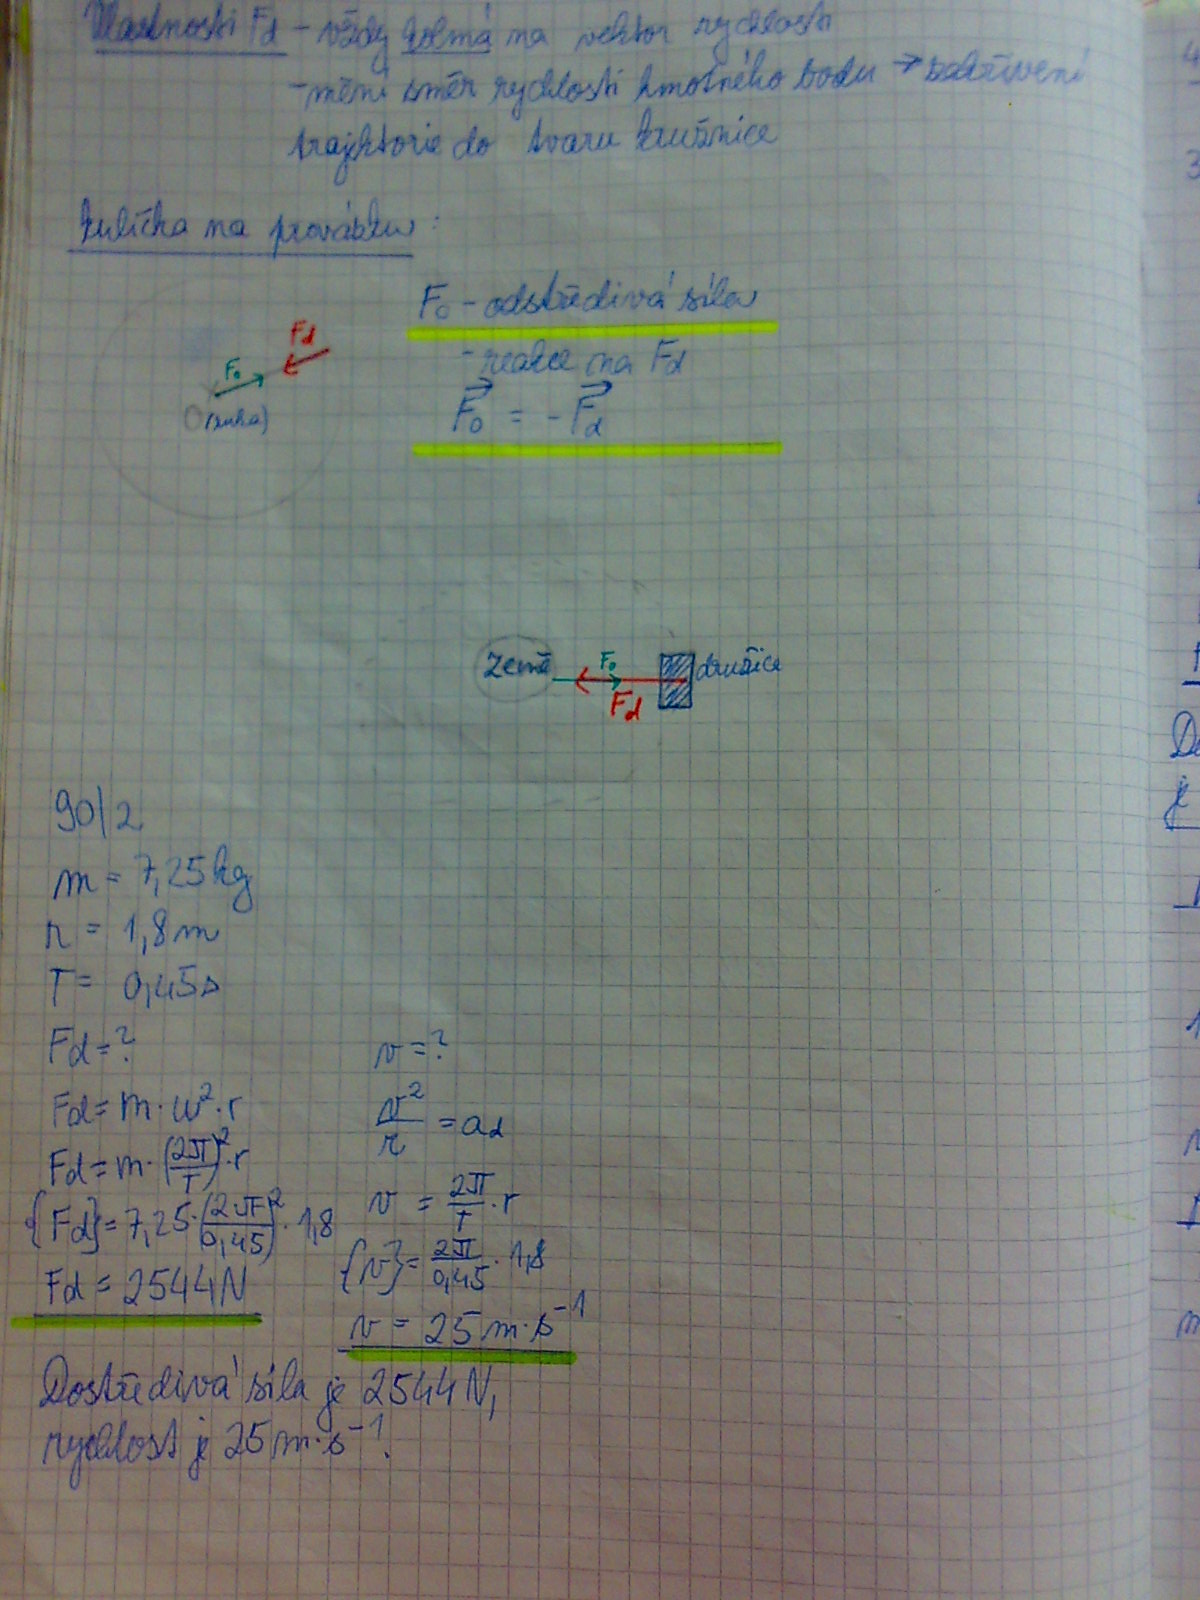 Vlastnosti Fd - vždy kolmá na vektor rychlosti
- mění směr rychlosti hmotného bodu → zakřivení
trajektorie do tvaru kružnice
kulička na provázku:
Fo - odstředivá síla
- reakce na Fd
Fo = - Fd
Fd
Fo
O (ruka)
Země
Fo
Fd
družice
90/2
m = 7,25 kg
r = 1,8 m
T = 0,45 s
Fd = ?
Fd = m · ω² · r
Fd = m · (2π/T)² · r
{Fd} = 7,25 · (2π/0,45)² · 1,8
Fd = 2544 N
v = ?
v²/r = ad
v = 2π/T · r
{v} = 2π/0,45 · 1,8
v = 25 m · s⁻¹
Dostředivá síla je 2544 N,
rychlost je 25 m · s⁻¹.